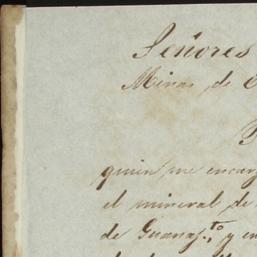 Señores
Minas de
quien me encarg
el mineral de
de Guanaj.to y en